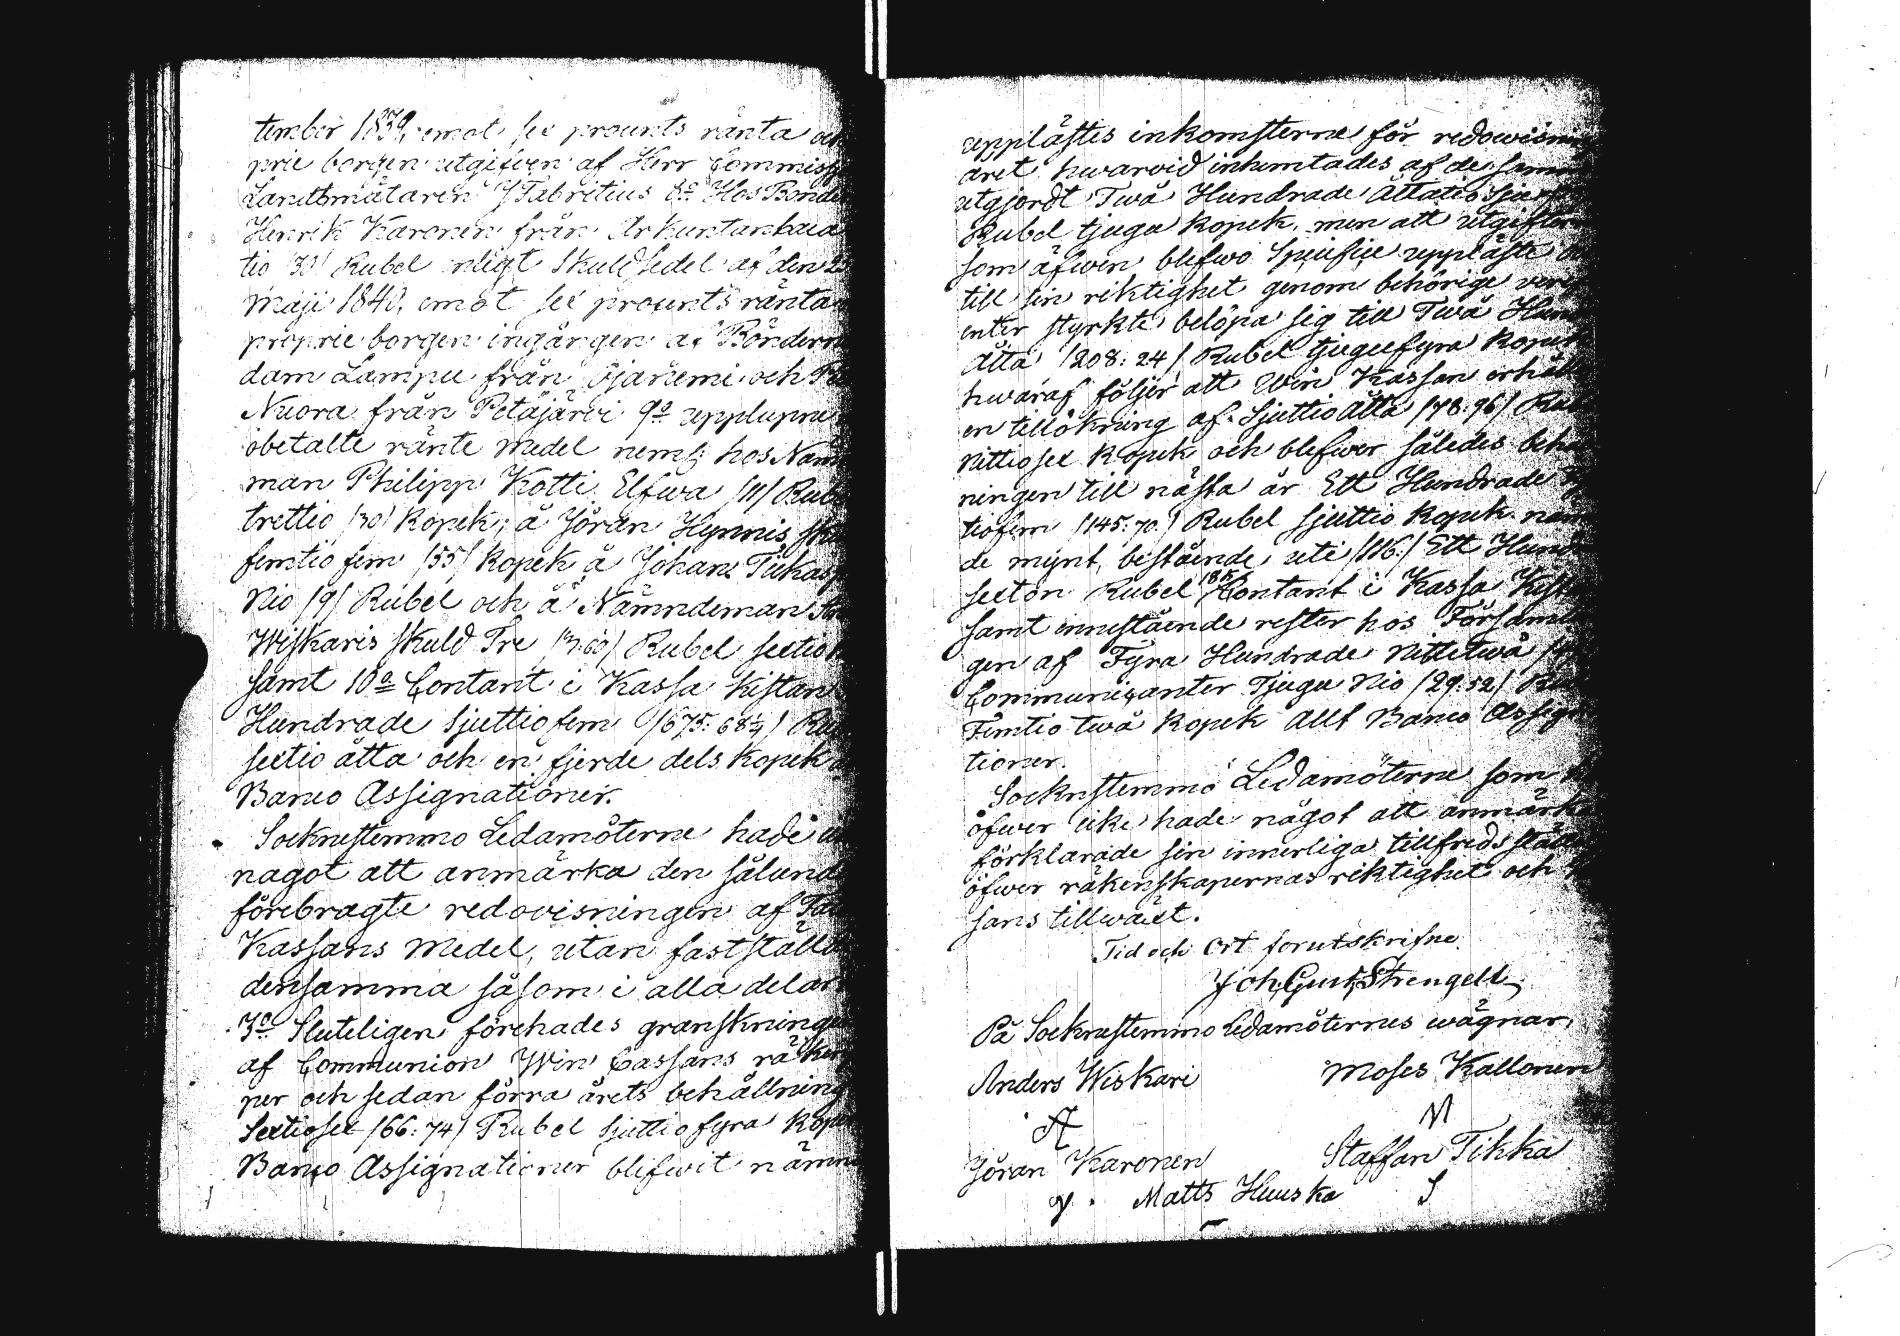 tember 1839, emot sex procents ränta och
prie borgen utgifven af Herr Commiss
Landtmätaren J Fabritius 8o Hos Bonde
Henrik Karonen från Arkuntanhara
tio /30/ Rubel enligt Skuldsedel af den 2
Maji 1840, emot sex procents ränta
proprie borgen ingången af Bönderne
dam Lampu från Ojaniemi och
Nuora från Petäjärvi 9o upplupne
obetalte ränte Medel neml: hos Näm
man Philipp Kotti Elfwa /11/ Rub
trettio /30/ Kopek; å Jöran Hynnis sku
femtio fem /55/ Kopek å Johan Tukas
Nio /9/ Rubel och å Nämndeman
Wiskaris skuld Tre /3.60/ Rubel sextio
samt 10o Contant i Kassa Kistan
Hundrade Sjuttiofem /675: 68¼/ Rub
sextio åtta och en fjerde dels Kopek
Banco Assignationer.
Sockenstemmo Ledamöterne hade
nagot att anmärka den sålund
förebragte redovisningen af
Kassans Medel, utan fastställde
densamma såsom i alla delar
3o Sluteligen förehades granskninge
af Communion Win Cassans räken
per och sedan förra årets behållning
Sextiosex /66: 74/ Rubel Sjuttiofyra Kopek
Banco Assignationer blifwit nämn
upplästes inkomsterne för redowisnin
året hwarvid inhemtades af de samm
utgjordt Twå Hundrade Åttatio Sju
Rubel tjugu Kopek, men att utgifterne
som äfwen blefwo Specifice uppläste
till sin riktighet genom behörige veri
enter styrkte belöpa sig till Twå Hund
Åtta /208: 24/ Rubel tjugufyra Kopek
hwaraf följer att Win Kassan erhåll
en tillökning af Sjuttio Åtta /78. 96/ Rub
Nittiosex Kopek och blefwer således behå
ningen till nästa år Ett Hundrade
tiofem /145: 70/ Rubel Sjuttio Kopek näm
de mynt, bestående uti /116:/ Ett Hund
sexton Rubel 18 K Contant i Kassa Kista
samt innestående rester hos Församl
gen af Fyra Hundrade Nittitwå
Communicanter Tjugu Nio /29: 52/ Rub
Femtio twå Kopek Allt Banco Assigna
tioner.
Sockenstemmo Ledamöterne som
öfwer icke hade något att anmärka
förklarade sin innerliga tillfredsställe
öfwer räkenskapernas riktighet och
sans tillwäxt.
Tid och Ort förutskrifne.
Joh: Gust: Strengell
På Sockenstemmo Ledamöternes wägnar,
Anders Wiskari Moses Kallonen
A M
Jöran Karonen Staffan Tikka
J. Matts Huuska S